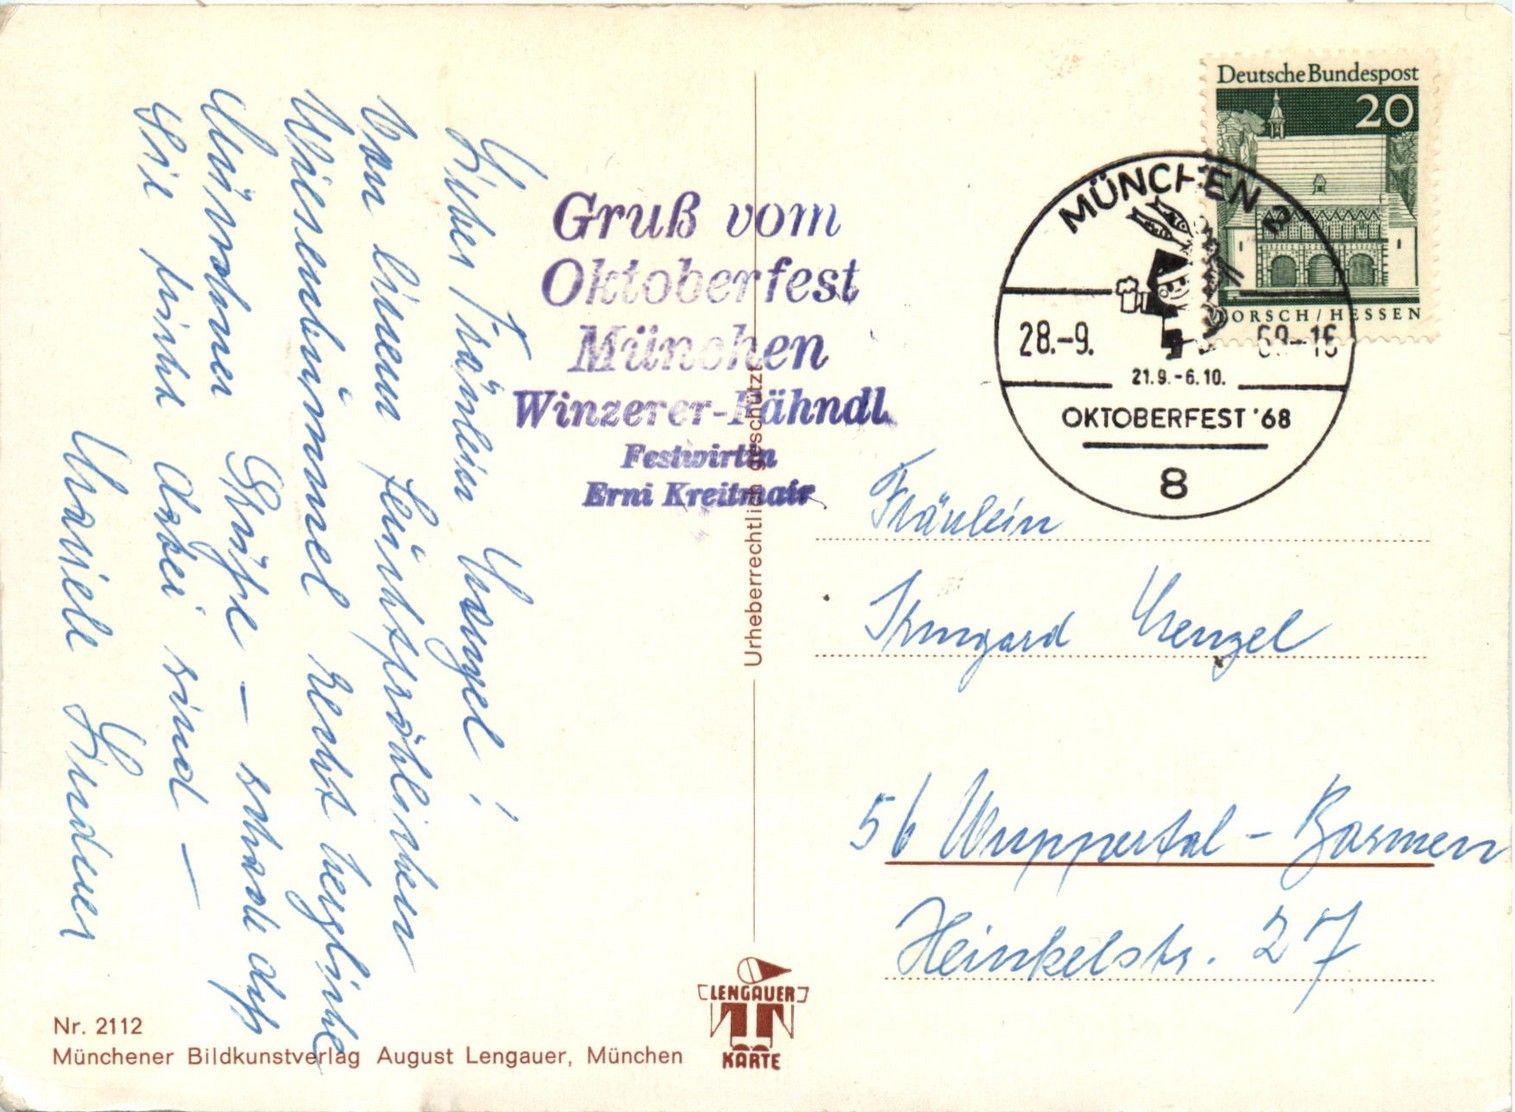 Liebes Fräulein Wengel!
Von einem feuchtfröhlichen
Wiesenbummel recht herzliche
Münchner Grüße – schade daß
Sie nicht dabei sind –
Lindner
Gruß vom
Oktoberfest
München
Winzerer-Fähndl
Festwirtin
Erni Kreitmair
Urheberrechtlich geschützt
Deutsche Bundespost
20
LORSCH/HESSEN
MÜNCHEN 8
28.-9. 68-16
21.9.-6.10.
OKTOBERFEST '68
8
Fräulein
Irmgard Wenzel
56 Wuppertal-Barmen
Heinkelstr. 27
Nr. 2112
Münchener Bildkunstverlag August Lengauer, München
LENGAUER
KARTE